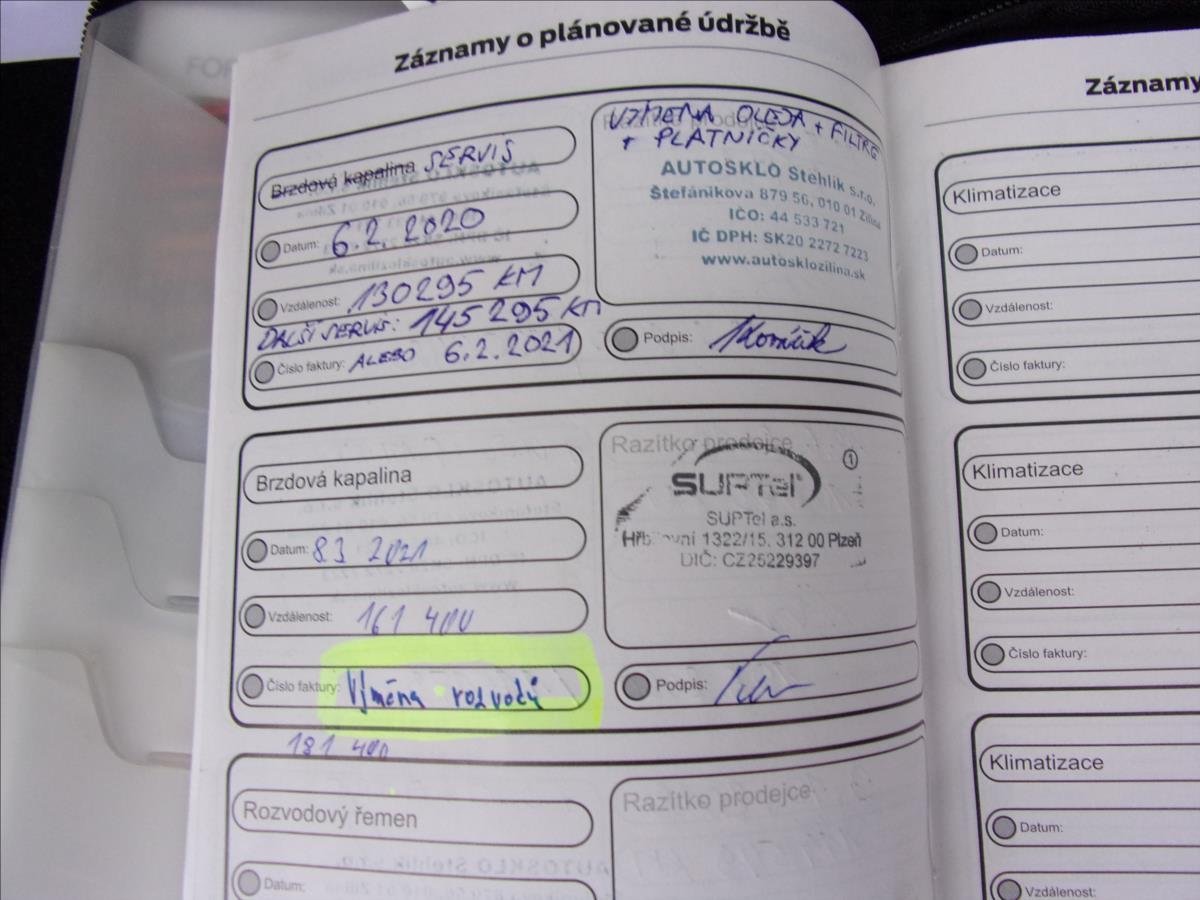 Záznamy o plánované údržbě
Brzdová kapalina SERVIS
Datum: 6.2.2020
Vzdálenost: 130295 KM
ĎALŠÍ SERVIS: 145295 KM
Číslo faktury: ALEBO 6.2.2021
VÝMENA OLEJA + FILTRE
+ PLATNIČKY
AUTOSKLO Stehlík s.r.o.
Štefánikova 879 56, 010 01 Žilina
IČO: 44 533 721
IČ DPH: SK20 2272 7223
www.autosklozilina.sk
Podpis:
Brzdová kapalina
Datum: 8 3 2021
Vzdálenost: 161 400
Číslo faktury: Výměna rozvodů
181 400
Razítko prodejce
1
SUPTel
SUPTel a.s.
1322/15, 312 00 Plzeň
DIČ: CZ25229397
Podpis:
Rozvodový řemen
Datum:
Razítko prodejce
Záznamy
Klimatizace
Datum:
Vzdálenost:
Číslo faktury:
Klimatizace
Datum:
Vzdálenost:
Číslo faktury:
Klimatizace
Datum:
Vzdálenost: